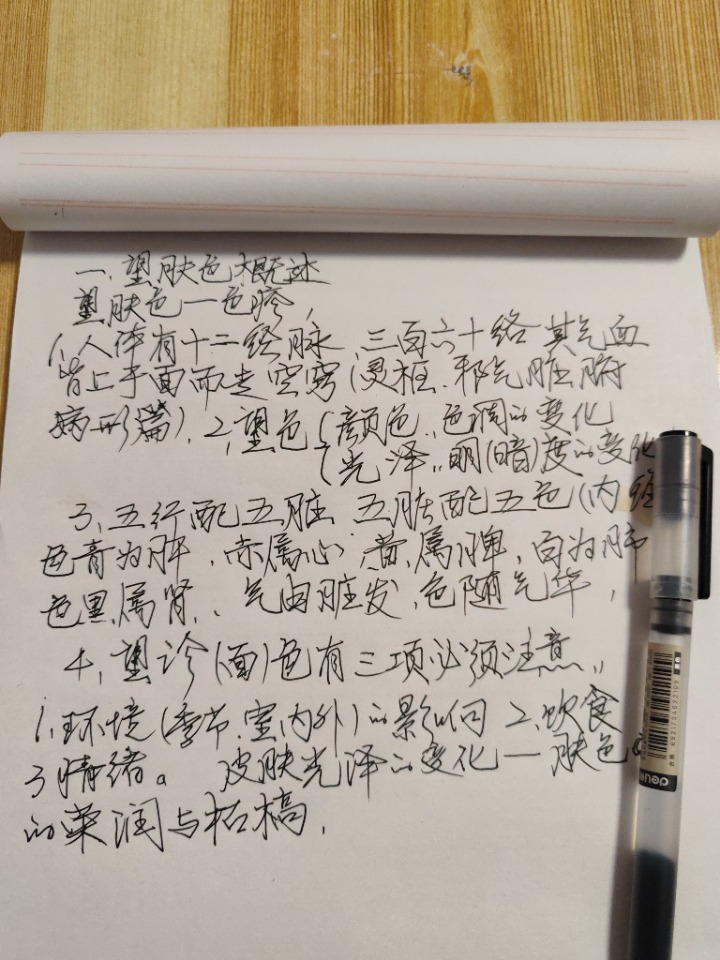 一、望肤色概述
望肤色一色诊,
1、人体有十二经脉、三百六十络 其气血
皆上于面而走空窍(灵枢、邪气脏腑
病形篇)、2、望色{颜色、色调的变化
{光泽、明(暗)度的变化
3、五行配五脏 五脏配五色(内经
色青为肝、赤属心、黄属脾、白为肺
色黑属肾、气由脏发、色随气华,
4、望诊(面)色有三项必须注意、
1、环境(季节、室内外)的影响 2、饮食
3情绪。 皮肤光泽的变化一肤色
的荣润与枯槁,
deli
6921734932199